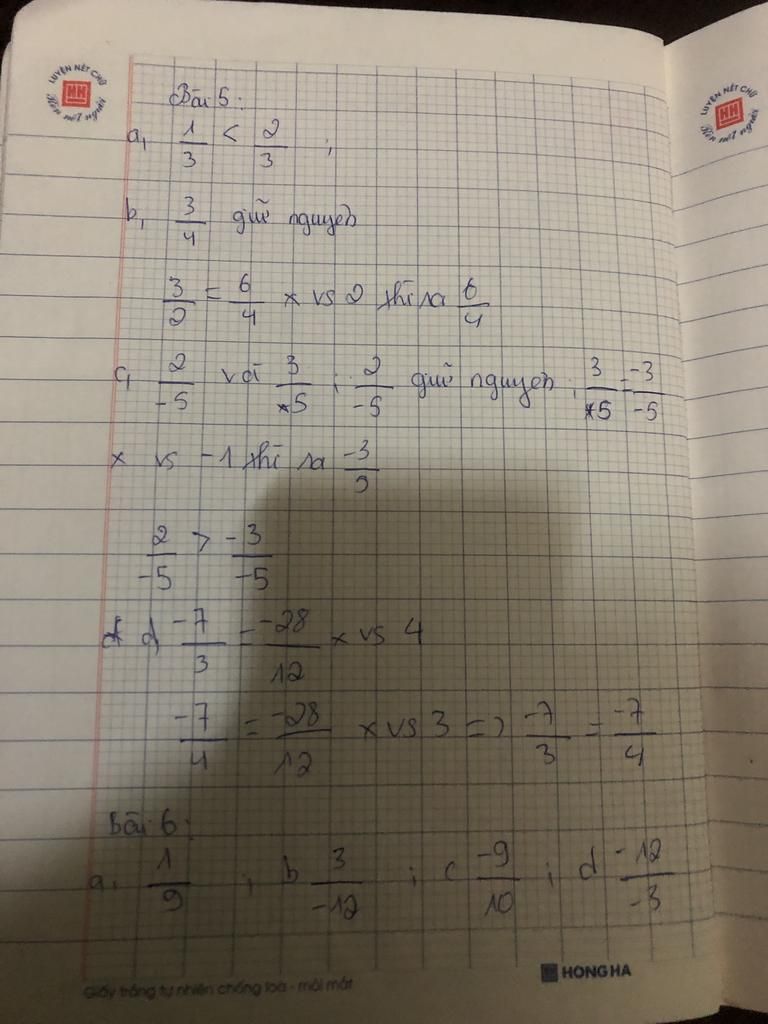 LUYỆN NÉT CHỮ
HH
Rèn nết người
LUYỆN NÉT CHỮ
HH
Rèn nết người
Bài 5:
a, 1/3 < 2/3 ;
b, 3/4 giữ nguyên
3/2 = 6/4 x vs 2 thì ra 6/4
c, 2/-5 và 3/5 ; 2/-5 giữ nguyên ; 3/5 = -3/-5
x vs -1 thì ra -3/5
2/-5 > -3/-5
d -7/3 = -28/12 x vs 4
-7/4 = -28/12 x vs 3 => -7/3 = -7/4
Bài 6:
a. 1/9 ; b 3/-12 ; c -9/10 ; d -12/-3
Giấy trắng tự nhiên chống loá - mỏi mắt
HONG HA